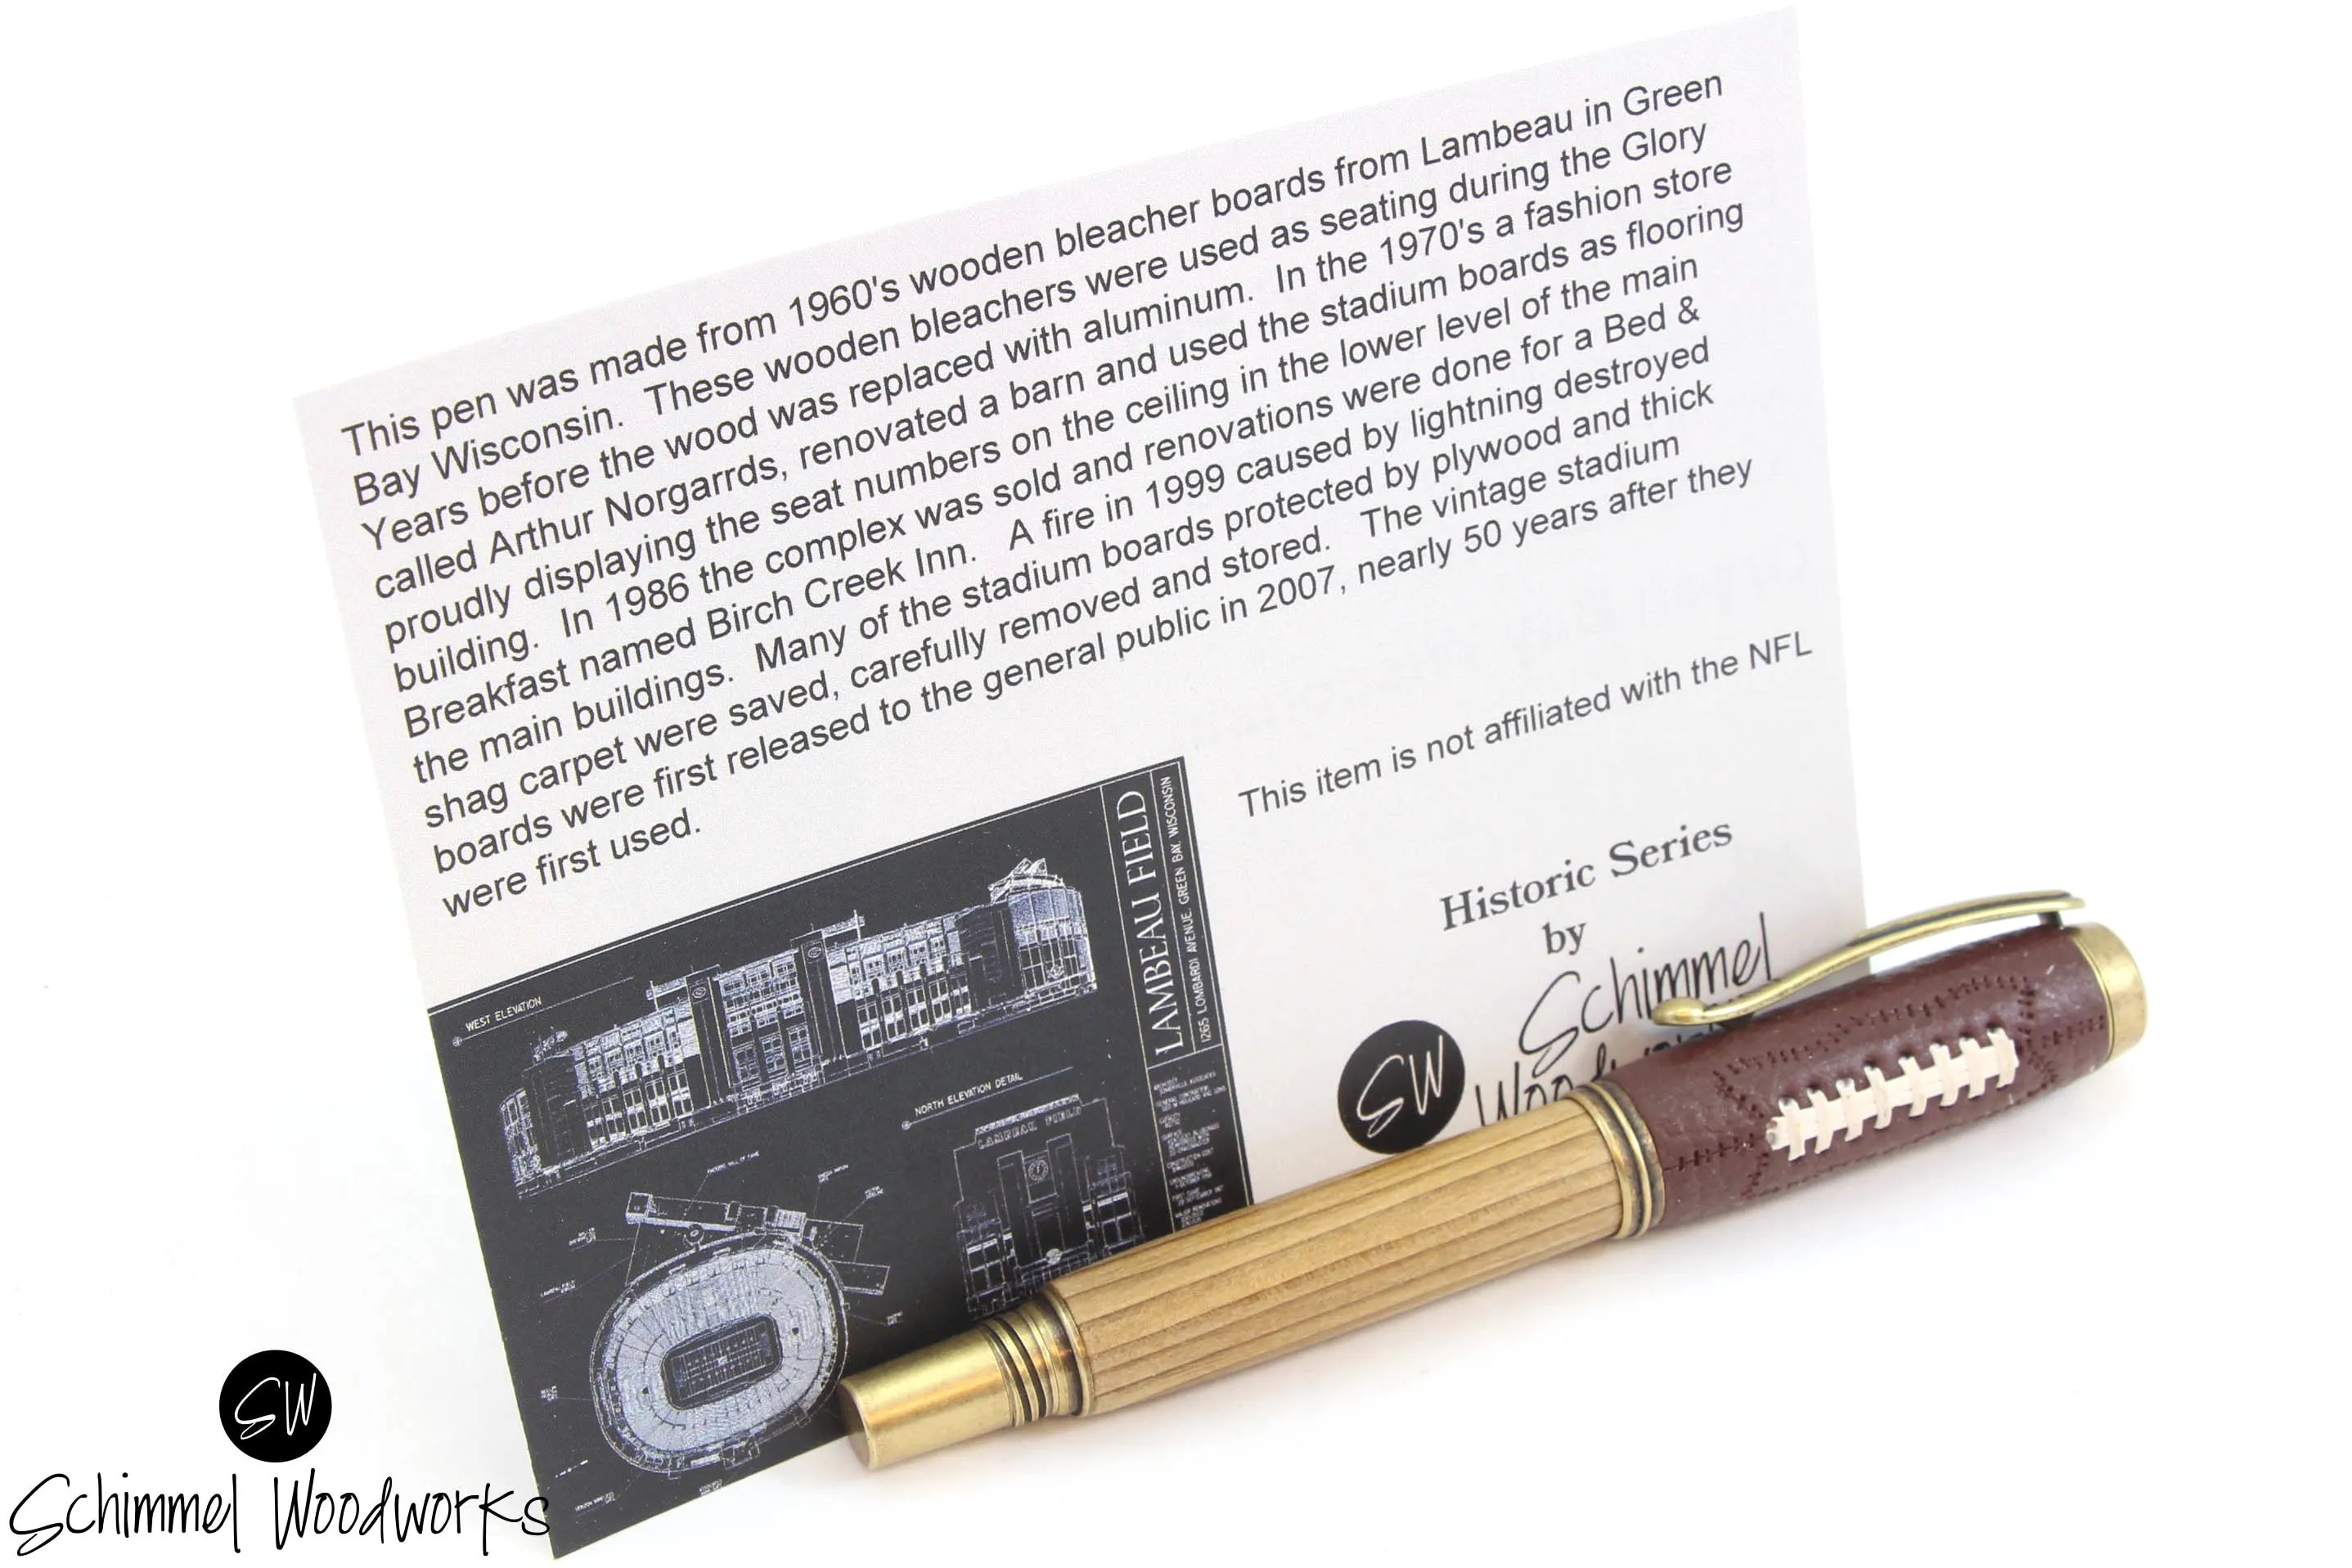 This pen was made from 1960's wooden bleacher boards from Lambeau in Green
Bay Wisconsin. These wooden bleachers were used as seating during the Glory
Years before the wood was replaced with aluminum. In the 1970's a fashion store
called Arthur Norgarrds, renovated a barn and used the stadium boards as flooring
proudly displaying the seat numbers on the ceiling in the lower level of the main
building. In 1986 the complex was sold and renovations were done for a Bed &
Breakfast named Birch Creek Inn. A fire in 1999 caused by lightning destroyed
the main buildings. Many of the stadium boards protected by plywood and thick
shag carpet were saved, carefully removed and stored. The vintage stadium
boards were first released to the general public in 2007, nearly 50 years after they
were first used.
This item is not affiliated with the NFL
Historic Series
by
Schimmel
SW
WEST ELEVATION
LAMBEAU FIELD
1265 LOMBARDI AVENUE, GREEN BAY, WISCONSIN
NORTH ELEVATION DETAIL
LAMBEAU FIELD
SW
Schimmel Woodworks